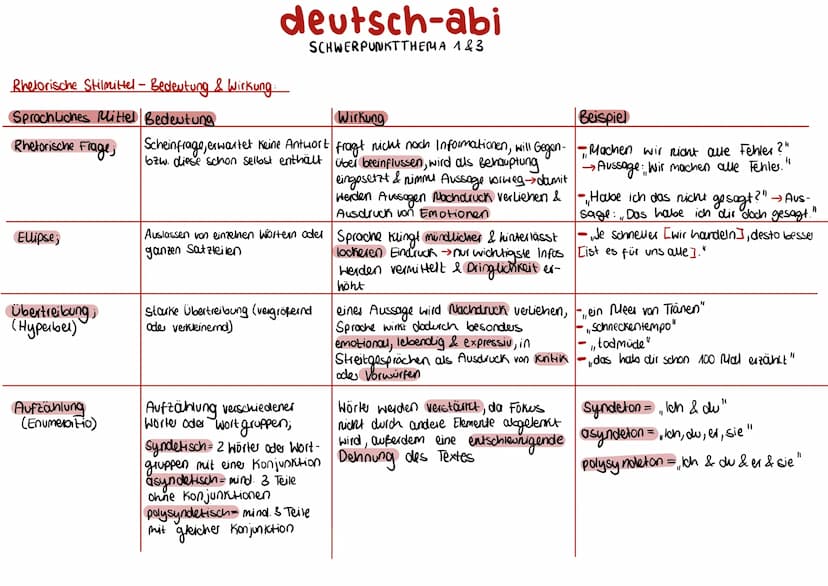 deutsch-abi
SCHWERPUNKTTHEMA 1&3
Rhetorische Stilmittel - Bedeutung & Wirkung:
Sprachliches Mittel
Bedeutung
Wirkung
Beispiel
Rhetorische Frage,
Scheinfrage, erwartet keine Antwort
bzw. diese schon selbst enthält
fragt nicht nach Informationen, will Gegen-
über beeinflussen, wird als Behauptung
eingesetzt & nimmt Aussage vorweg → damit
werden Aussagen Nachdruck verliehen &
Ausdruck von Emotionen
- „Machen wir nicht alle Fehler?"
→ Aussage: „Wir machen alle Fehler."
- „Habe ich das nicht gesagt?" → Aus-
sage: „Das habe ich dir doch gesagt."
Ellipse,
Auslassen von einzelnen Wörtern oder
ganzen Satzteilen
Sprache klingt mündlicher & hinterlässt
lockeren Eindruck → nur wichtigste Infos
werden vermittelt & Dringlichkeit er-
höht
- „Je schneller [wir handeln], desto besser
[ist es für uns alle]."
Übertreibung,
(Hyperbel)
starke Übertreibung (vergrößernd
oder verkleinernd)
einer Aussage wird Nachdruck verliehen,
Sprache wirkt dadurch besonders
emotional, lebendig & expressiv, in
Streitgesprächen als Ausdruck von Kritik
oder Vorwürfen
- „ein Meer von Tränen"
- „schneckentempo"
- „todmüde"
- „das hab dir schon 100 Mal erzählt"
Aufzählung
(Enumeratio)
Aufzählung verschiedener
Wörter oder Wortgruppen,
syndetisch = 2 Wörter oder Wort-
gruppen mit einer Konjunktion
asyndetisch = mind. 3 Teile
ohne Konjunktionen
polysyndetisch = mind. 3 Teile
mit gleicher Konjunktion
Wörter werden verstärkt, da Fokus
nicht durch andere Elemente abgelenkt
wird, außerdem eine entschleunigende
Dehnung des Textes
Syndeton = „Ich & du"
asyndeton = „Ich, du, er, sie"
polysyndeton = „Ich & du & er & sie"